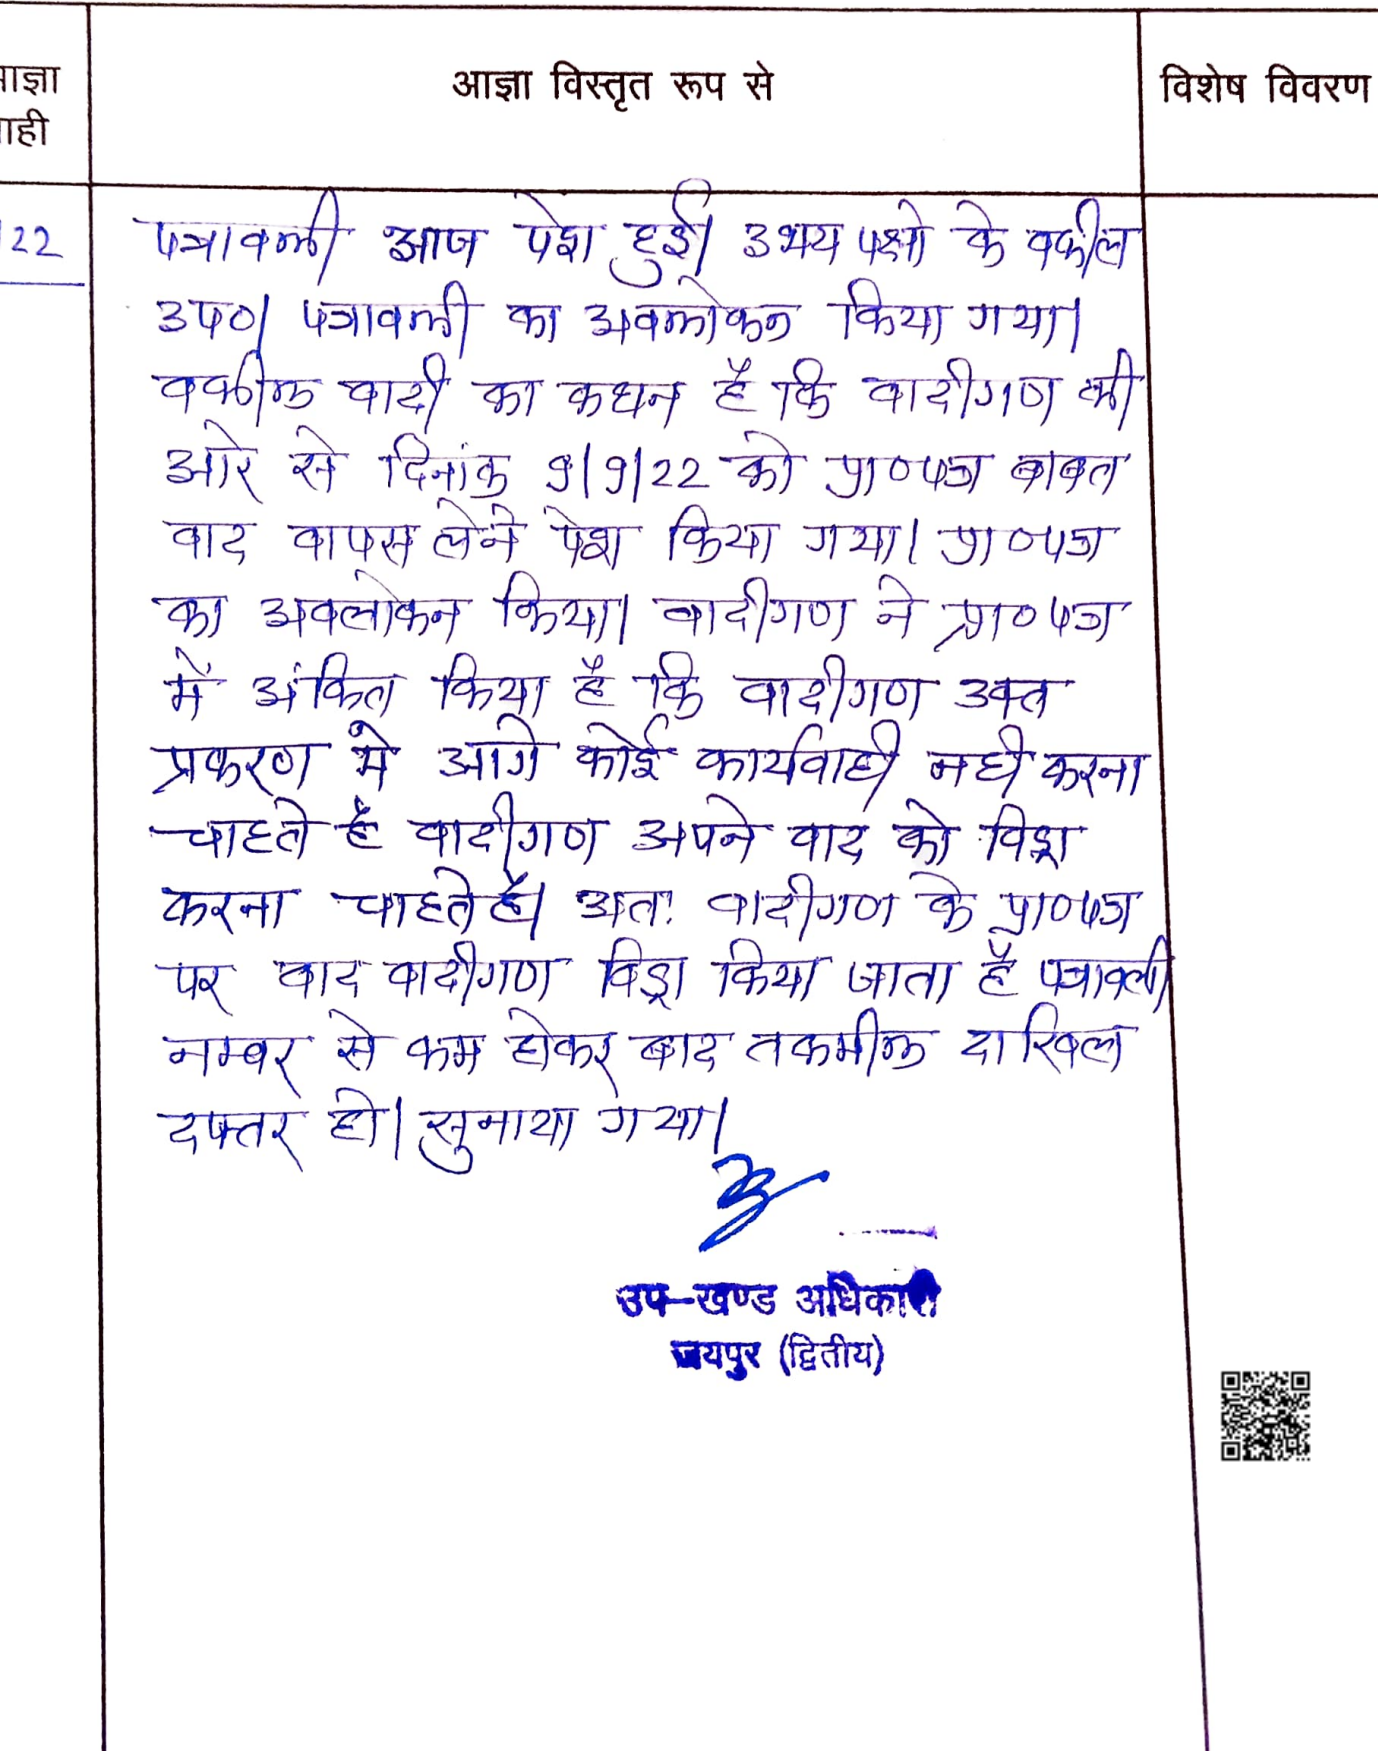 आज्ञा विस्तृत रूप से
विशेष विवरण
22
पत्रावली आज पेश हुई। उभय पक्षो के वकील
उप०। पत्रावली का अवलोकन किया गया।
वकील वादी का कथन है कि वादीगण की
ओर से दिनांक 9/9/22 को प्रा०पत्र बाबत
वाद वापस लेने पेश किया गया। प्रा०पत्र
का अवलोकन किया। वादीगण ने प्रा०पत्र
में अंकित किया है कि वादीगण उक्त
प्रकरण मे आगे कोई कार्यवाही नही करना
चाहते है वादीगण अपने वाद को विड्रा
करना चाहते है। अतः वादीगण के प्रा०पत्र
पर वाद वादीगण विड्रा किया जाता है पत्रावली
नम्बर से कम होकर बाद तकमील दाखिल
दफ्तर हो। सुनाया गया।
उप-खण्ड अधिकारी
जयपुर (द्वितीय)